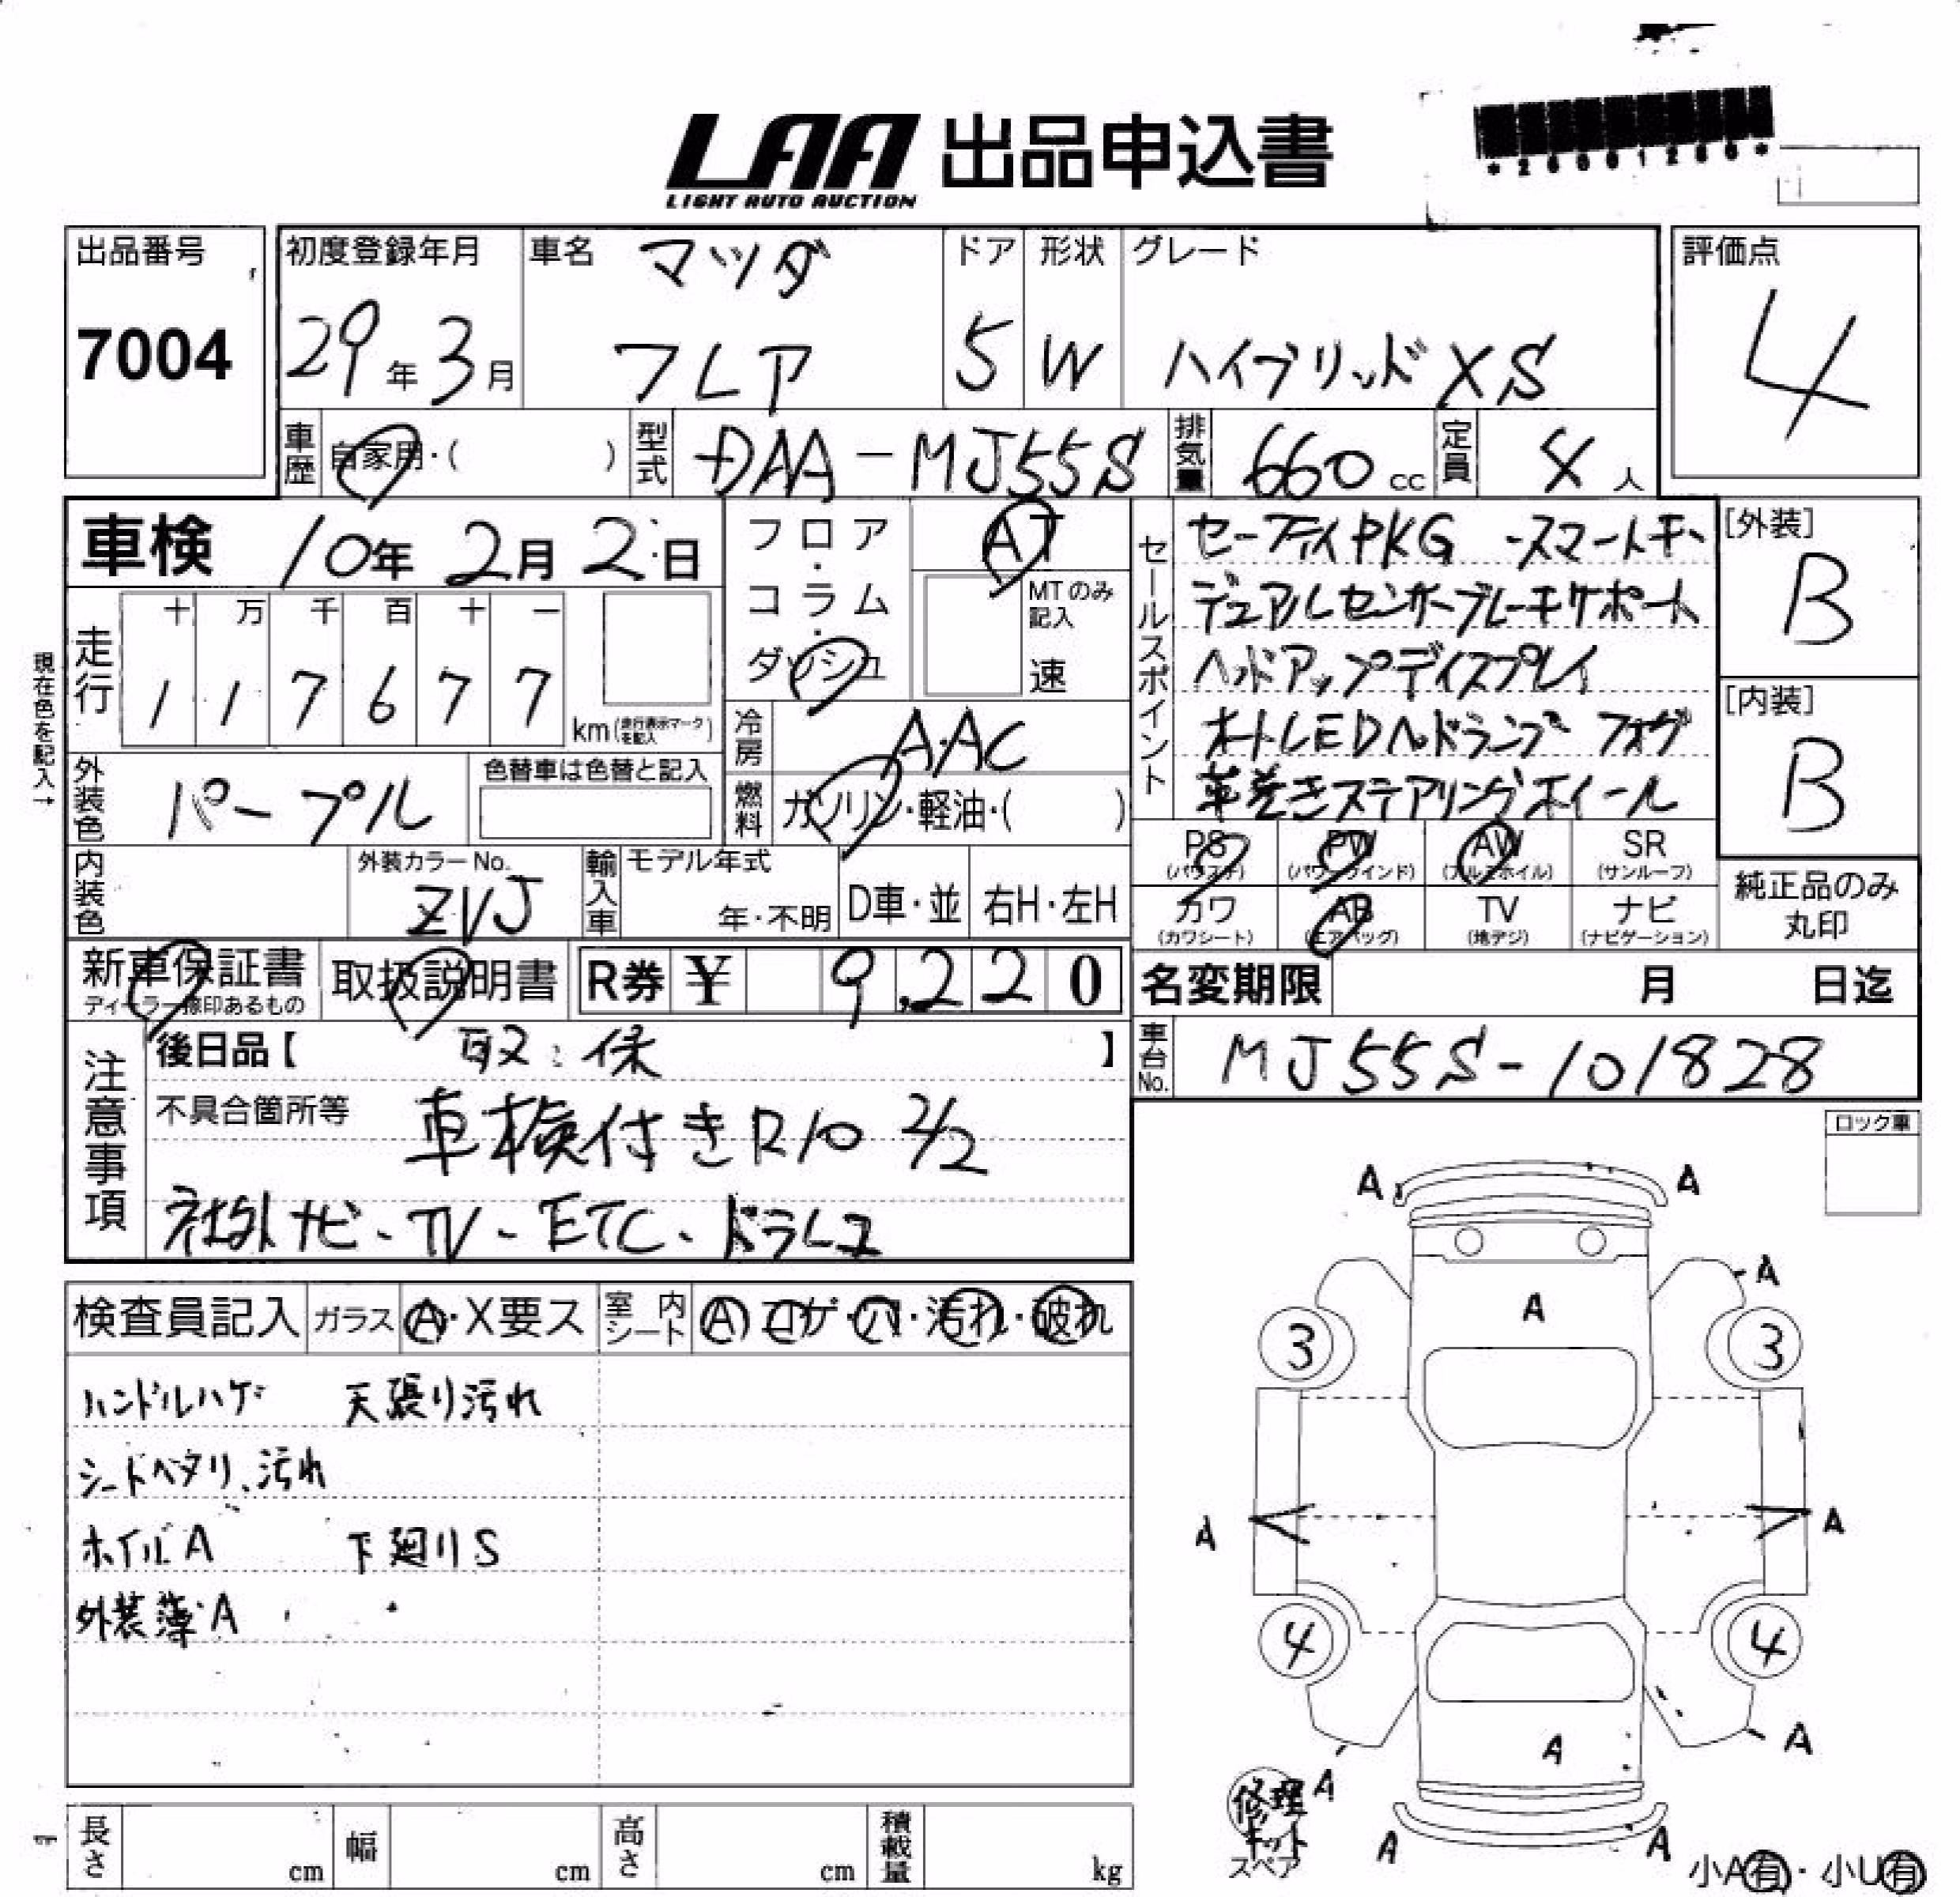 LAA 出品申込書
LIGHT AUTO AUCTION
出品番号
7004
初度登録年月
29年3月
車名
マツダ
フレア
ドア
5
形状
W
グレード
ハイブリッドXS
評価点
4
車歴 自家用・( )
型式 DAA-MJ55S
排気量 660cc
定員 4人
車検 10年2月2日
フロア・コラム・ダッシュ
AT
MTのみ記入
速
セールスポイント
セーフティPKG ・スマートキー
デュアルセンサーブレーキサポート
ヘッドアップディスプレイ
オートLEDヘッドランプ フォグ
革巻きステアリングホイール
[外装]
B
[内装]
B
現在色を記入→
走行
十 万 千 百 十 一
1 1 7 6 7 7
km(走行表示マークを記入)
冷房 A・AC
燃料 ガソリン・軽油・( )
外装色 パープル
色替車は色替と記入
内装色
外装カラーNo.
ZVJ
輸入車
モデル年式
年・不明
D車・並
右H・左H
PS (パワステ)
PW (パワーウインド)
AW (アルミホイル)
SR (サンルーフ)
カワ (カワシート)
AB (エアバッグ)
TV (地デジ)
ナビ (ナビゲーション)
純正品のみ
丸印
新車保証書
ディーラー捺印あるもの
取扱説明書
R券 ¥ 9,220
名変期限 月 日迄
車台No. MJ55S-101828
注意事項
後日品【 取・保 】
不具合箇所等 車検付きR10 2/2
社外ナビ・TV・ETC・ドラレコ
ロック車
検査員記入
ガラス A・X要ス
室内シート A コゲ・穴・汚れ・破れ
ハンドルハゲ 天張り汚れ
シートヘタリ、汚れ
ホイルA 下廻りS
外装薄A
A A
A
A
3 3
A A
4 4
A
A
A
A A
修理
キット
スペア
小A有・小U有
長さ cm
幅 cm
高さ cm
積載量 kg